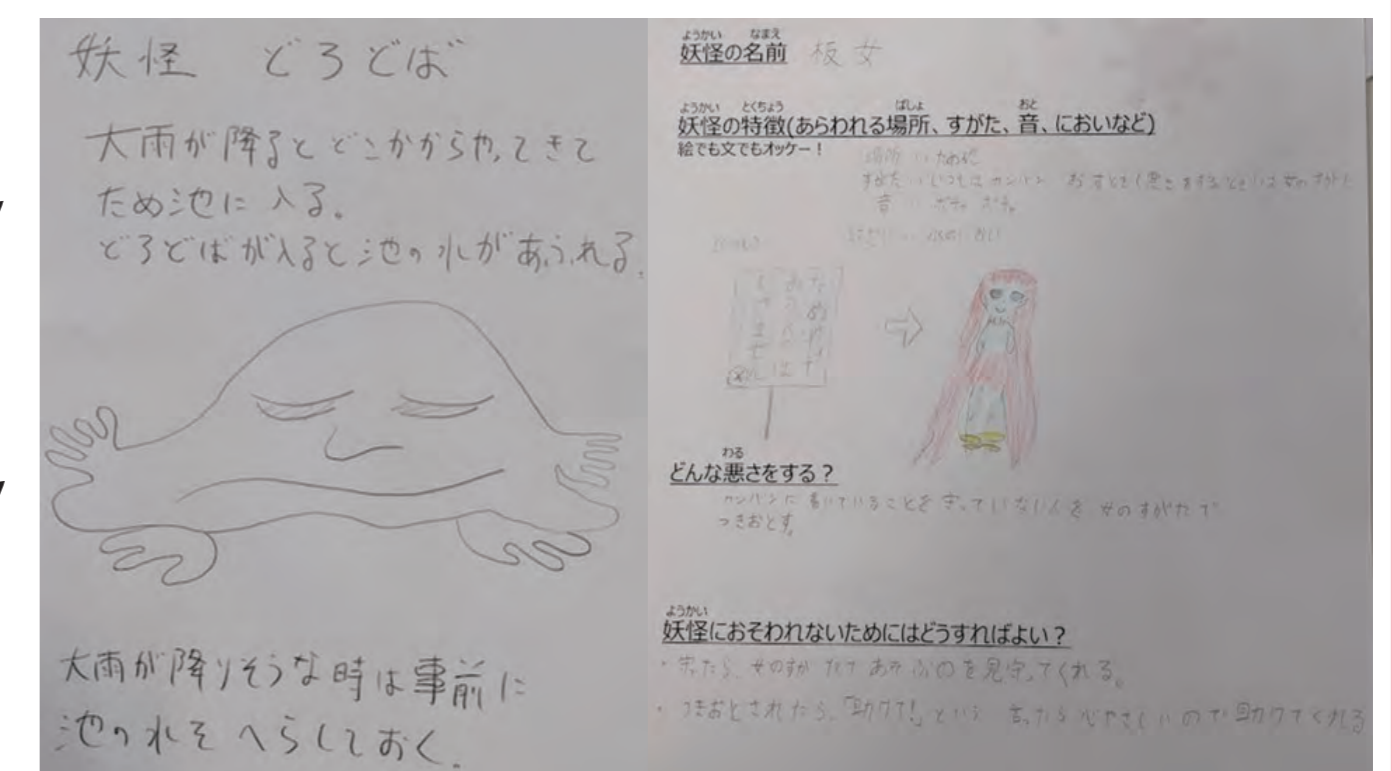 妖怪 どろどば
大雨が降るとどこかからやってきて
ため池に入る。
どろどばが入ると池の水があふれる。
大雨が降りそうな時は事前に
池の水をへらしておく。
ようかい なまえ
妖怪の名前 板女
ようかい とくちょう ばしょ おと
妖怪の特徴(あらわれる場所、すがた、音、においなど)
絵でも文でもオッケー!
場所 ため池
すがた いつもはカンバン おすとき(悪さをするとき)は女のすがた
音 ポチャ ポチャ
わる
どんな悪さをする?
カンバンに書いていることを守っていない人を女のすがたで
つきおとす。
ようかい
妖怪におそわれないためにはどうすればよい?
・守たら、女のすがたであそぶのを見守ってくれる。
・つきおとされたら、「助けて!」という 言ったら心やさしいので助けてくれる